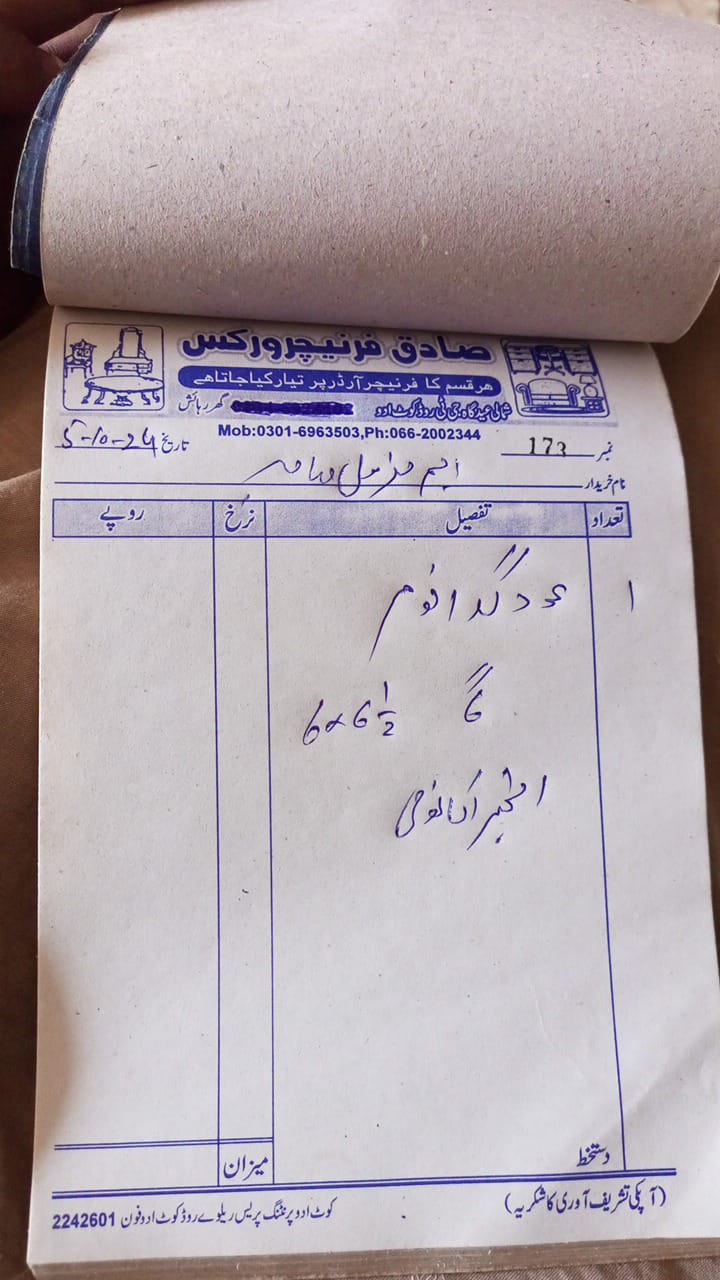 صادق فرنیچر ورکس
ہر قسم کا فرنیچر آرڈر پر تیار کیا جاتا ہے
شمالی عید گاہ جی ٹی روڈ کوٹ ادو گھر رہائش
Mob:0301-6963503,Ph:066-2002344
نمبر 173 تاریخ 5-10-24
نام خریدار ایم مزمل
تعداد تفصیل نرخ روپے
1 عدد گدا فوم
6 6x6 1/2
دستخط میزان
(آپکی تشریف آوری کا شکریہ)
کوٹ ادو پرنٹنگ پریس ریلوے روڈ کوٹ ادو فون 2242601